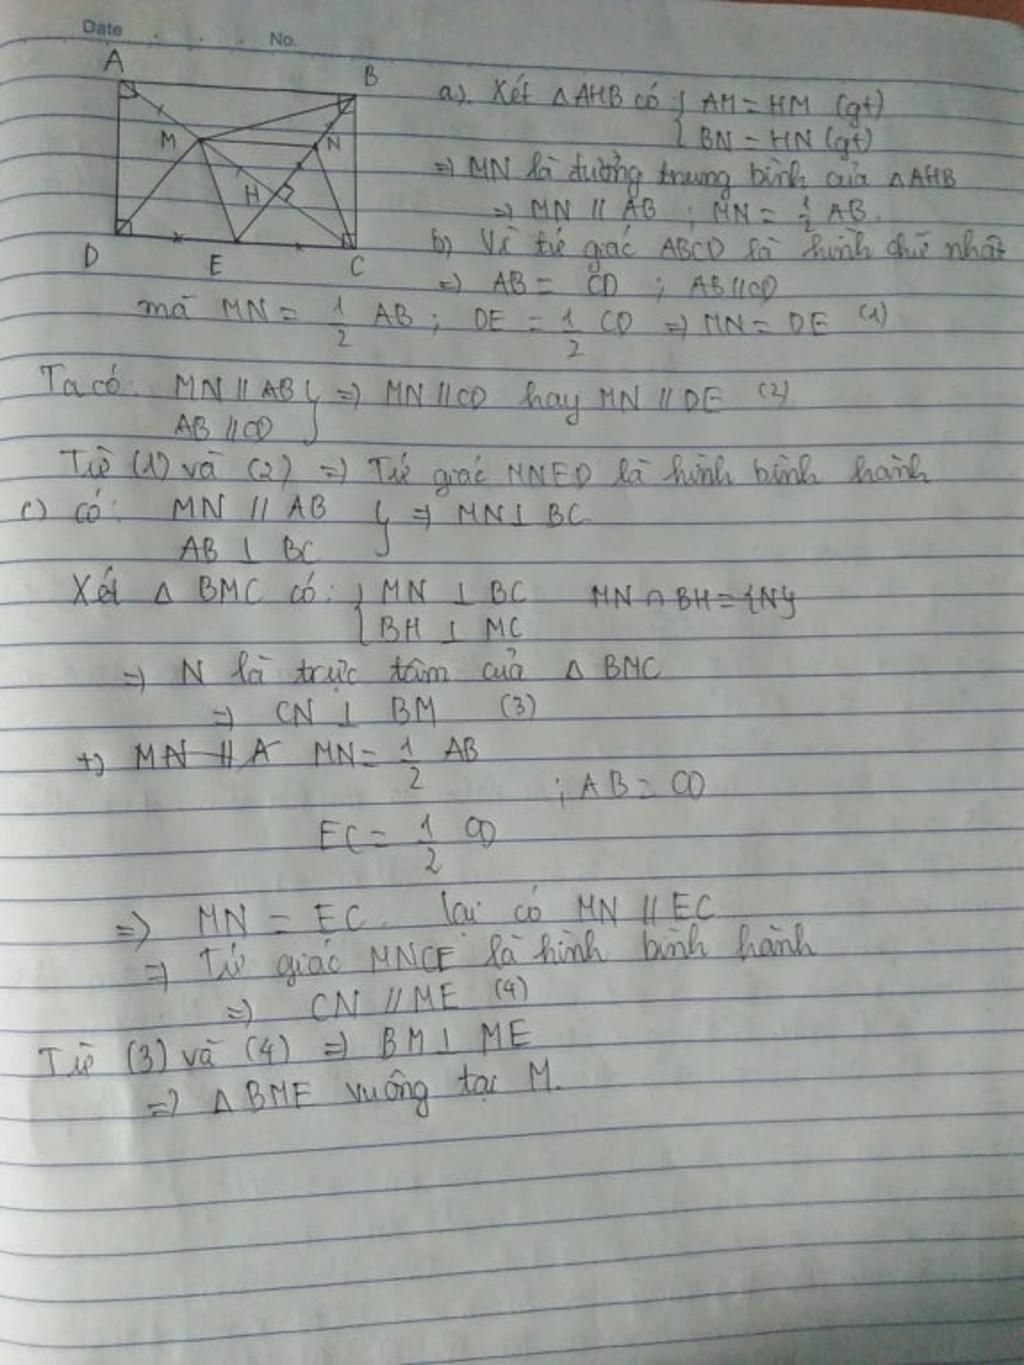 Date . . . No.
A
B
M
N
H
D
E
C
a). Xét △AHB có { AM = HM (gt)
BN = HN (gt)
=> MN là đường trung bình của △AHB
=> MN // AB ; MN = 1/2 AB.
b) Vì tứ giác ABCD là hình chữ nhật
=> AB = CD ; AB//CD
mà MN = 1/2 AB ; DE = 1/2 CD => MN = DE (1)
Ta có: MN // AB } => MN // CD hay MN // DE (2)
AB // CD
Từ (1) và (2) => Tứ giác MNED là hình bình hành
c) có: MN // AB } => MN ⊥ BC
AB ⊥ BC
Xét △ BMC có: { MN ⊥ BC MN ∩ BH = {N}
BH ⊥ MC
=> N là trực tâm của △ BMC
=> CN ⊥ BM (3)
+) MN // A MN = 1/2 AB
; AB = CD
EC = 1/2 CD
=> MN = EC. lại có MN // EC
=> Tứ giác MNCE là hình bình hành
=> CN // ME (4)
Từ (3) và (4) => BM ⊥ ME
=> △ BME vuông tại M.